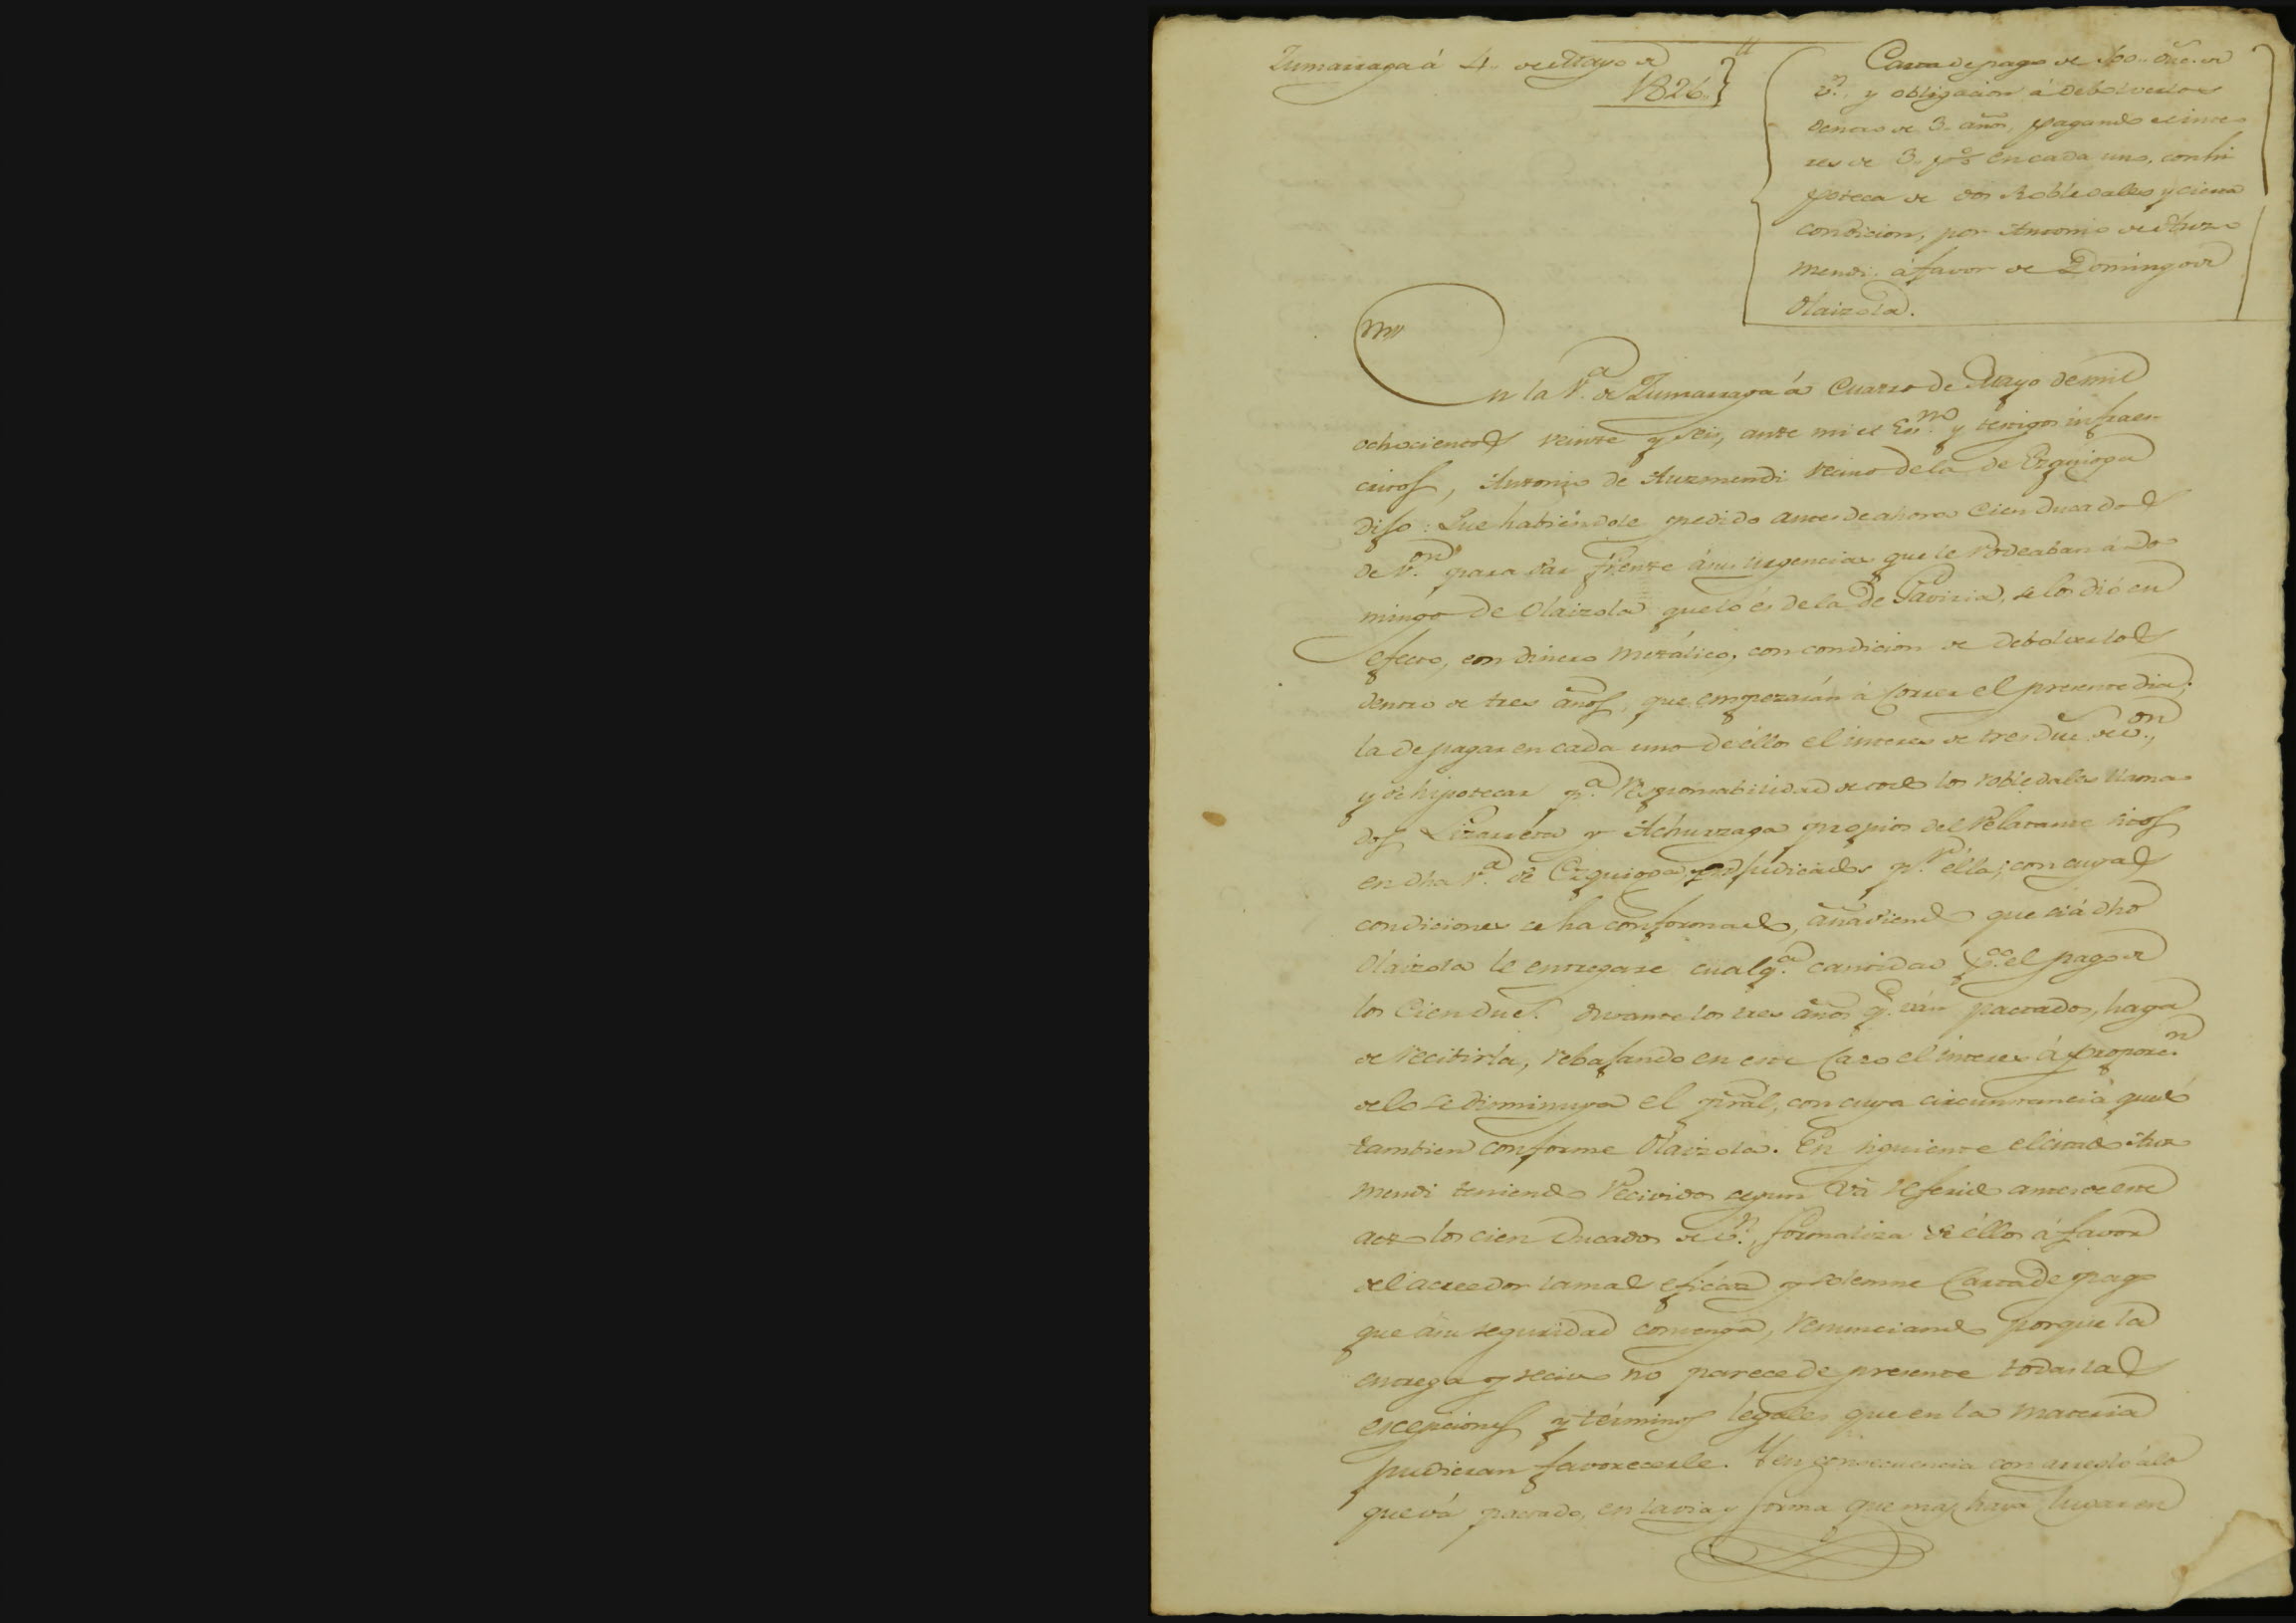 Zumarraga á 4. de Mayo de
1826.
Carta de pago de 100. duc.s de
v.n y obligacion á debolverlos
dentro de 3. años, pagando el inte-
res de 3. p% en cada uno, con hi
poteca de dos Robledales y cierta
condicion, por Antonio de Auz-
mendi, á favor de Domingo de
Olaizola.
En la V.a de Zumarraga á Cuatro de Mayo de mil
ochocientos veinte y seis, ante mi el Es.no y testigos infraes-
critos, Antonio de Auzmendi vecino de la de Ezquioga
dijo: Que habiéndole pedido antes de ahora Cien ducados
de v.on para dár frente á sus urgencias que le rodeaban á Do-
mingo de Olaizola que lo és de la de Gaviria, se los dió en
efecto, en dinero metálico, con condicion de debolverlos
dentro de tres años, que empezarán á correr el presente dia;
la de pagar en cada uno de éllos el interes de tres duc.s de v.on,
y de hipotecar p.a responsabilidad de todo los robledales llama-
dos Lizarréta y Achurzaga propios del relatante sitos
en dha V.a de Ezquioga, y adjudicados p.r élla; con cuyas
condiciones se ha conformado, añadiendo que si á dho
Olaizola le entregare cualq.a cantidad p.a el pago de
los Cien duc.s durante los tres años q.e ván pactados, haya
de recibirla, rebajando en este caso el interes á proporc.n
de lo se disminuya el pral, con cuya circunstancia quedó
tambien conforme Olaizola. En siguiente el citado Auz-
mendi teniendo recividos segun vá referido antes de este
acto los cien Ducados de v.n, formaliza de éllos á favor
del acreedor la mas eficáz y solemne Carta de pago
que á su seguridad convenga, renunciando porque la
entrega y recivo no parece de presente todas las
escepciones y términos legales que en la materia
pudieran favorecerle. Y en consecuencia con arreglo á lo
que vá pactado, en la via y forma que mas haya lugar en